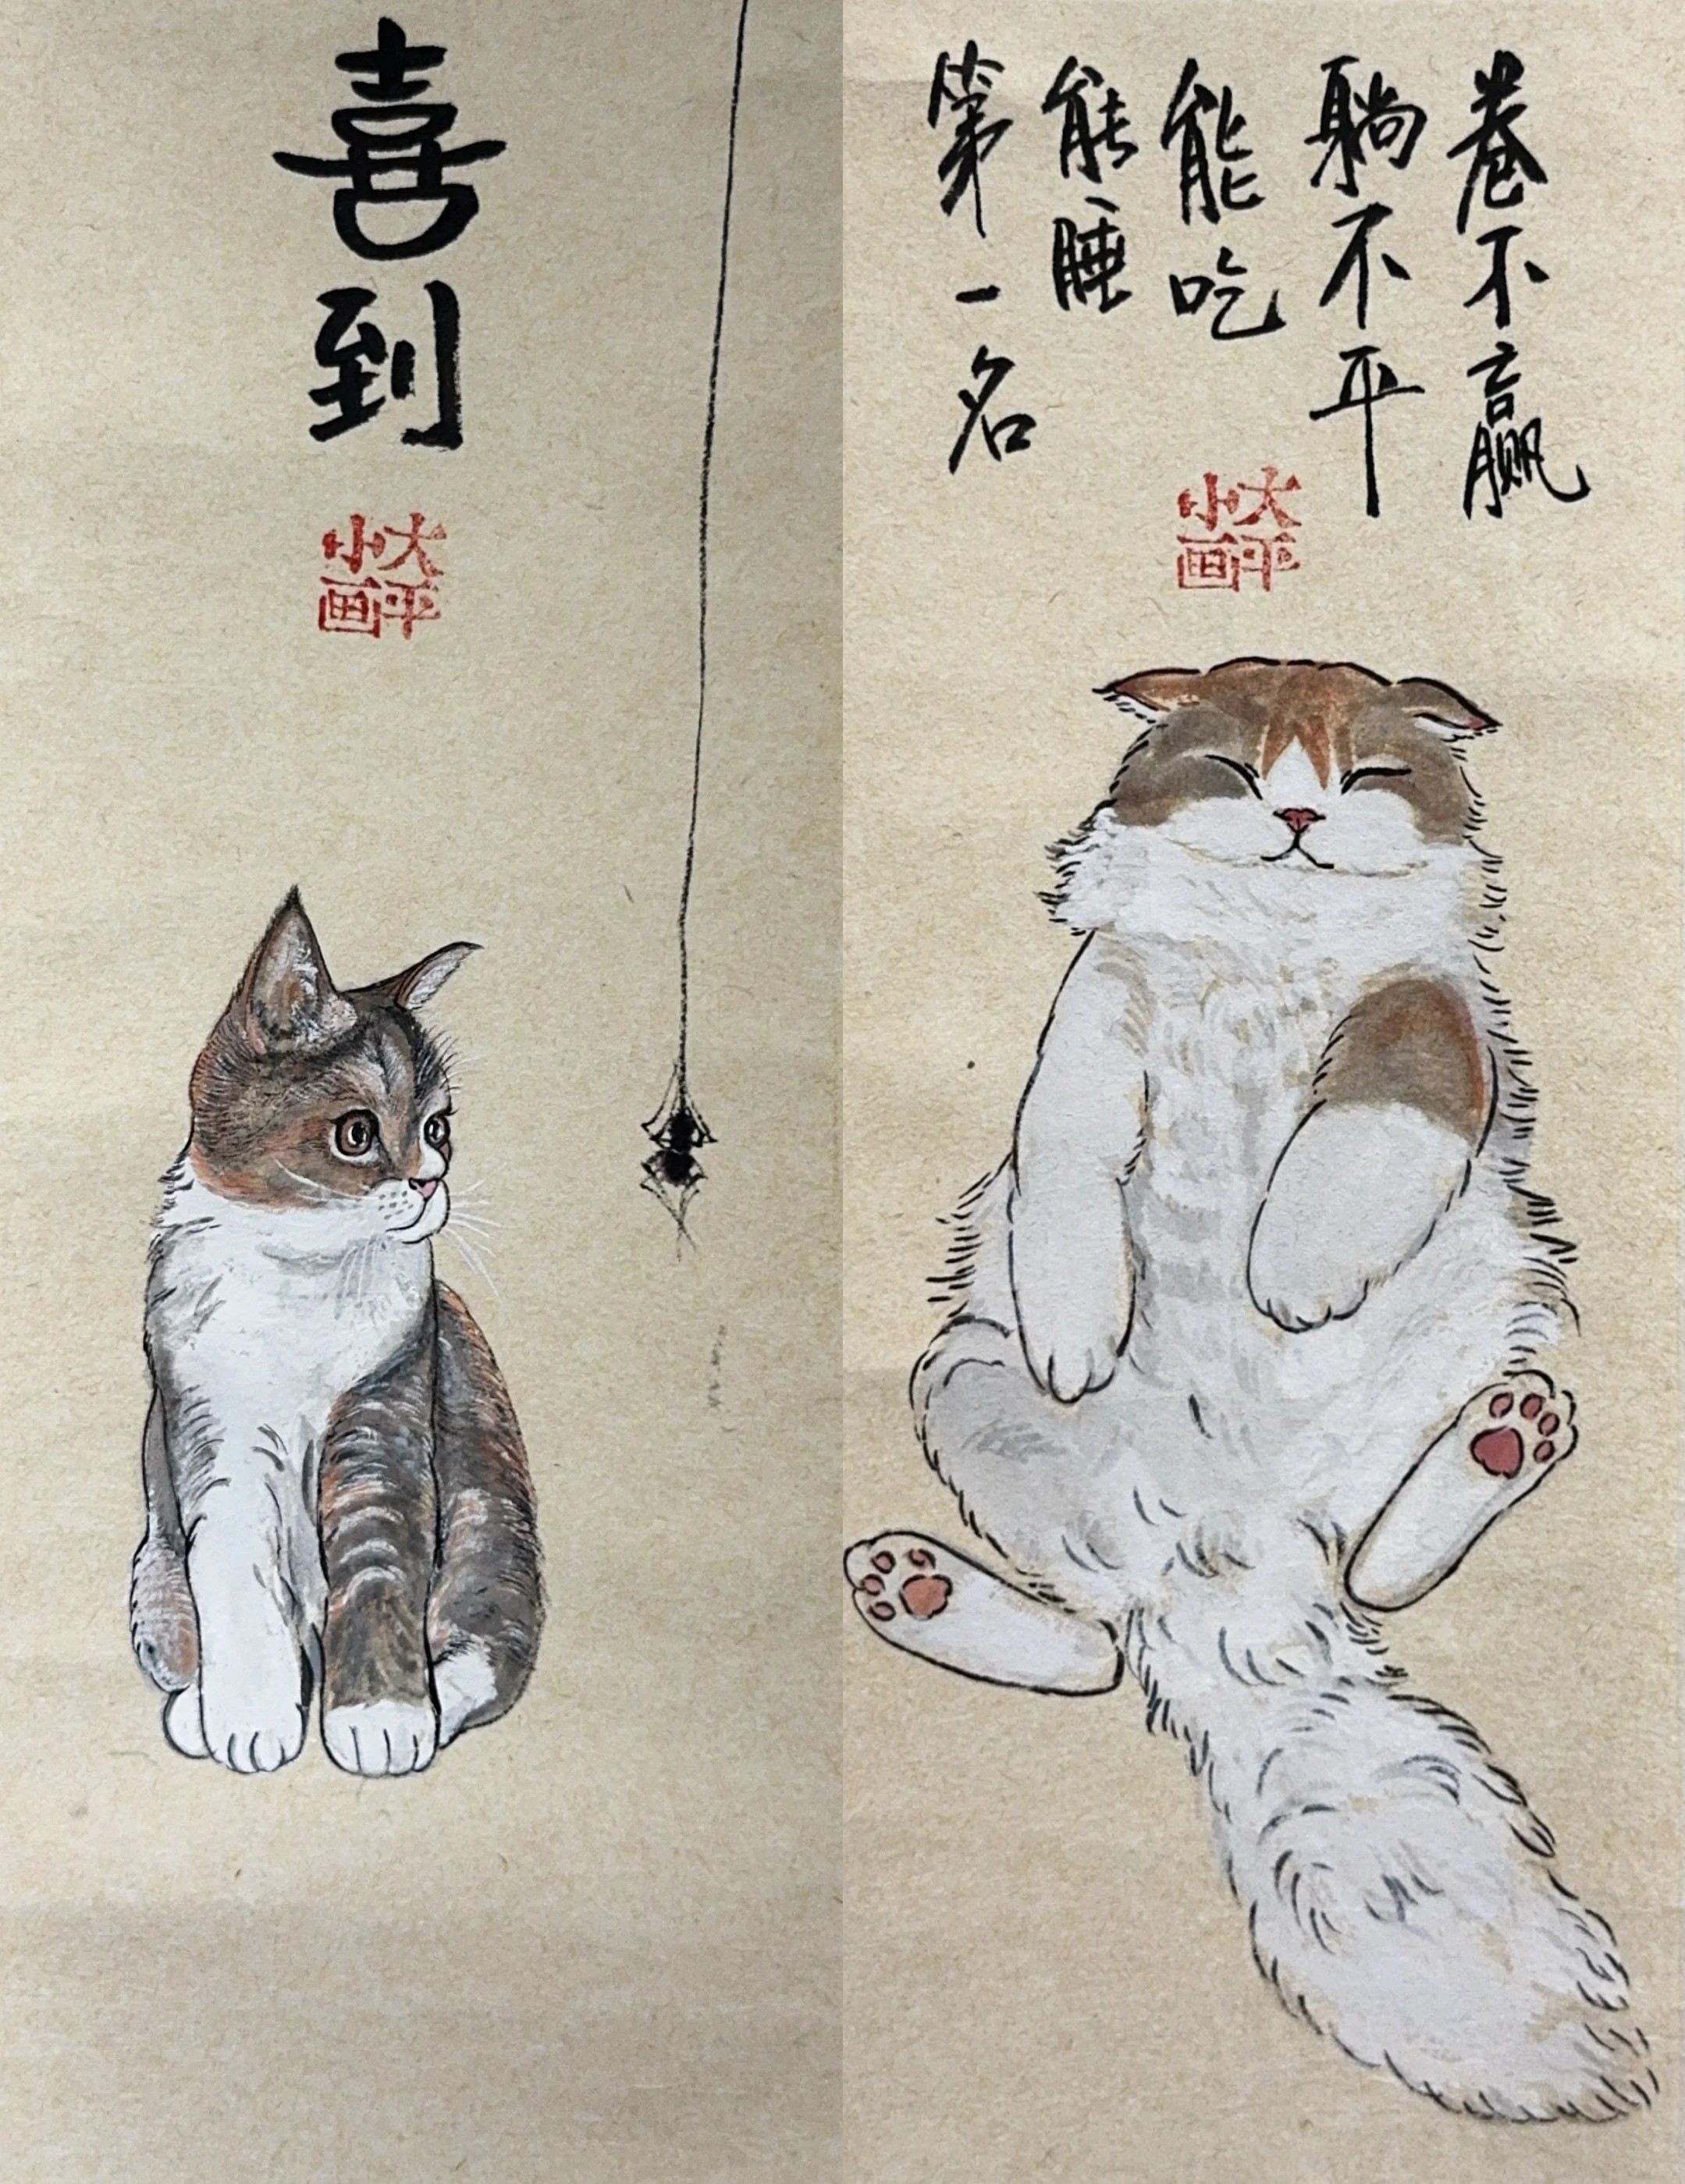 喜到
大平
小画
卷不赢
躺不平
能吃
能睡
第一名
大平
小画